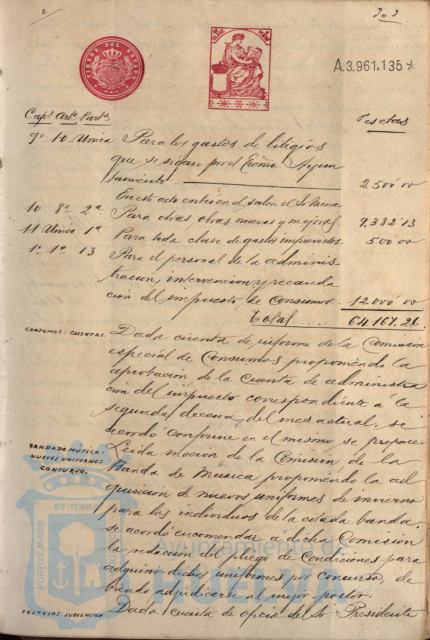 A.3.961.135
Capº Artº Partª Pesetas
9º 10 Unica Para los gastos de litigios
que se sigan por el Excmo Ayun
tamiento 2.500 00
En este acto entró en el salon el Sr
10 8º 2ª Para obras, obras nuevas y mejoras 9,382 13
11 Unico 1ª Para toda clase de gastos imprevistos 500 00
1º 1º 13 Para el personal de la adminis
tracion, intervencion y recauda
cion del impuesto de Consumos 12.000 00
Total .... 64.167.26
CONSUMOS: CUENTAS. Dada cuenta de informe de la Comision
especial de Consumos proponiendo la
aprobacion de la cuenta de administra
cion del impuesto correspondiente á la
segunda decena del mes actual, se
acordó conforme en el mismo se propone.
BANDA DE MUSICA. Leida mocion de la Comision de la
NUEVOS UNIFORMES Banda de Musica proponiendo la ad
CONCURSO. quisicion de nuevos uniformes de invierno
para los individuos de la citada banda,
se acordó encomendar a dicha Comision
la redaccion del pliego de Condiciones para
adquirir dichos uniformes por concurso, de
biendo adjudicarse al mejor postor.
FESTEJOS: SUBVENCION Dada cuenta de oficio del Sr Presidente
PORTUS MARIS ET TERRA
Ayuntamiento de